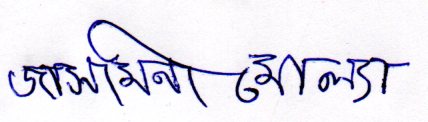 জাসমিনা মোল্যা